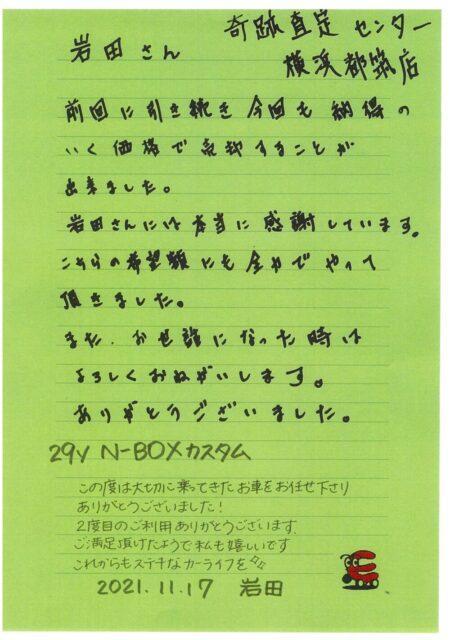 奇跡査定センター
横浜都筑店
岩田さん
前回に引き続き今回も納得の
いく価格で売却することが
出来ました。
岩田さんには本当に感謝しています。
こちらの希望額にも全力でやって
頂きました。
また、お世話になった時は
よろしくおねがいします。
ありがとうございました。
29y N-BOXカスタム
この度は大切に乗ってきたお車をお任せ下さり
ありがとうございました!
2度目のご利用ありがとうございます.
ご満足頂けたようで私も嬉しいです
これからもステキなカーライフを
2021.11.17 岩田